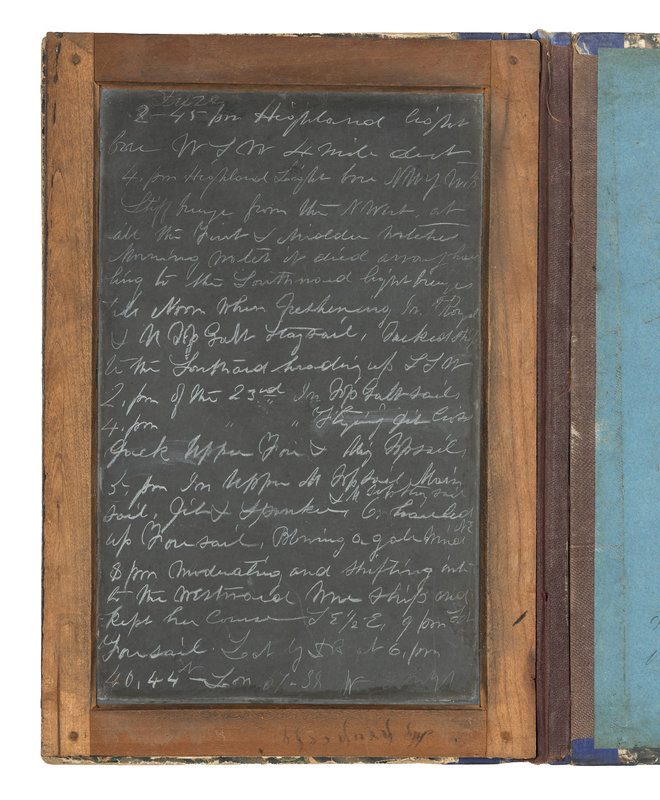 2-45 pm Highland light
bore W S W 4 mile dist
4, pm Highland Light bore NW
Stiff breeze from the N West, at
all the First & Middle watches
Morning watch it died away hau
ling to the Southward light breezes
till Noon when freshening, In
& M Top Galt Staysail, Tacked Ship
to the Southard heading up S S W
2, pm of the 23rd In Top Galt sails
4, pm " " Flying Jib Cross
Jack Upper Fore & Miz Topsail
5- pm In Upper M Topsail, Main
sail, Jib & Spanker, hauled
up Foresail, Blowing a gale
8 pm Moderating and shifting into
to the Westward Wore Ship and
kept her Course S E 1/2 E, 9 pm Set
Foresail. Lat by DR at 6, pm
40,44 N Lon W